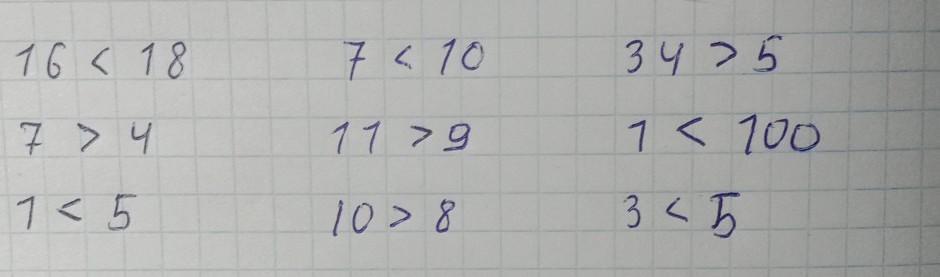 16 < 18 7 < 10 34 > 5
7 > 4 11 > 9 1 < 100
1 < 5 10 > 8 3 < 5